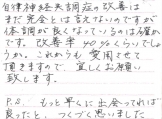 自律神経失調症の改善は
まだ完全とは言えないのですが
体調が良くなっているのは確か
です。改善率40%くらいでしょ
うか。これからも愛用させて
頂きますので、宜しくお願い
致します。
P.S. もっと早くに出会ってれば
良ったと、つくづく思いました